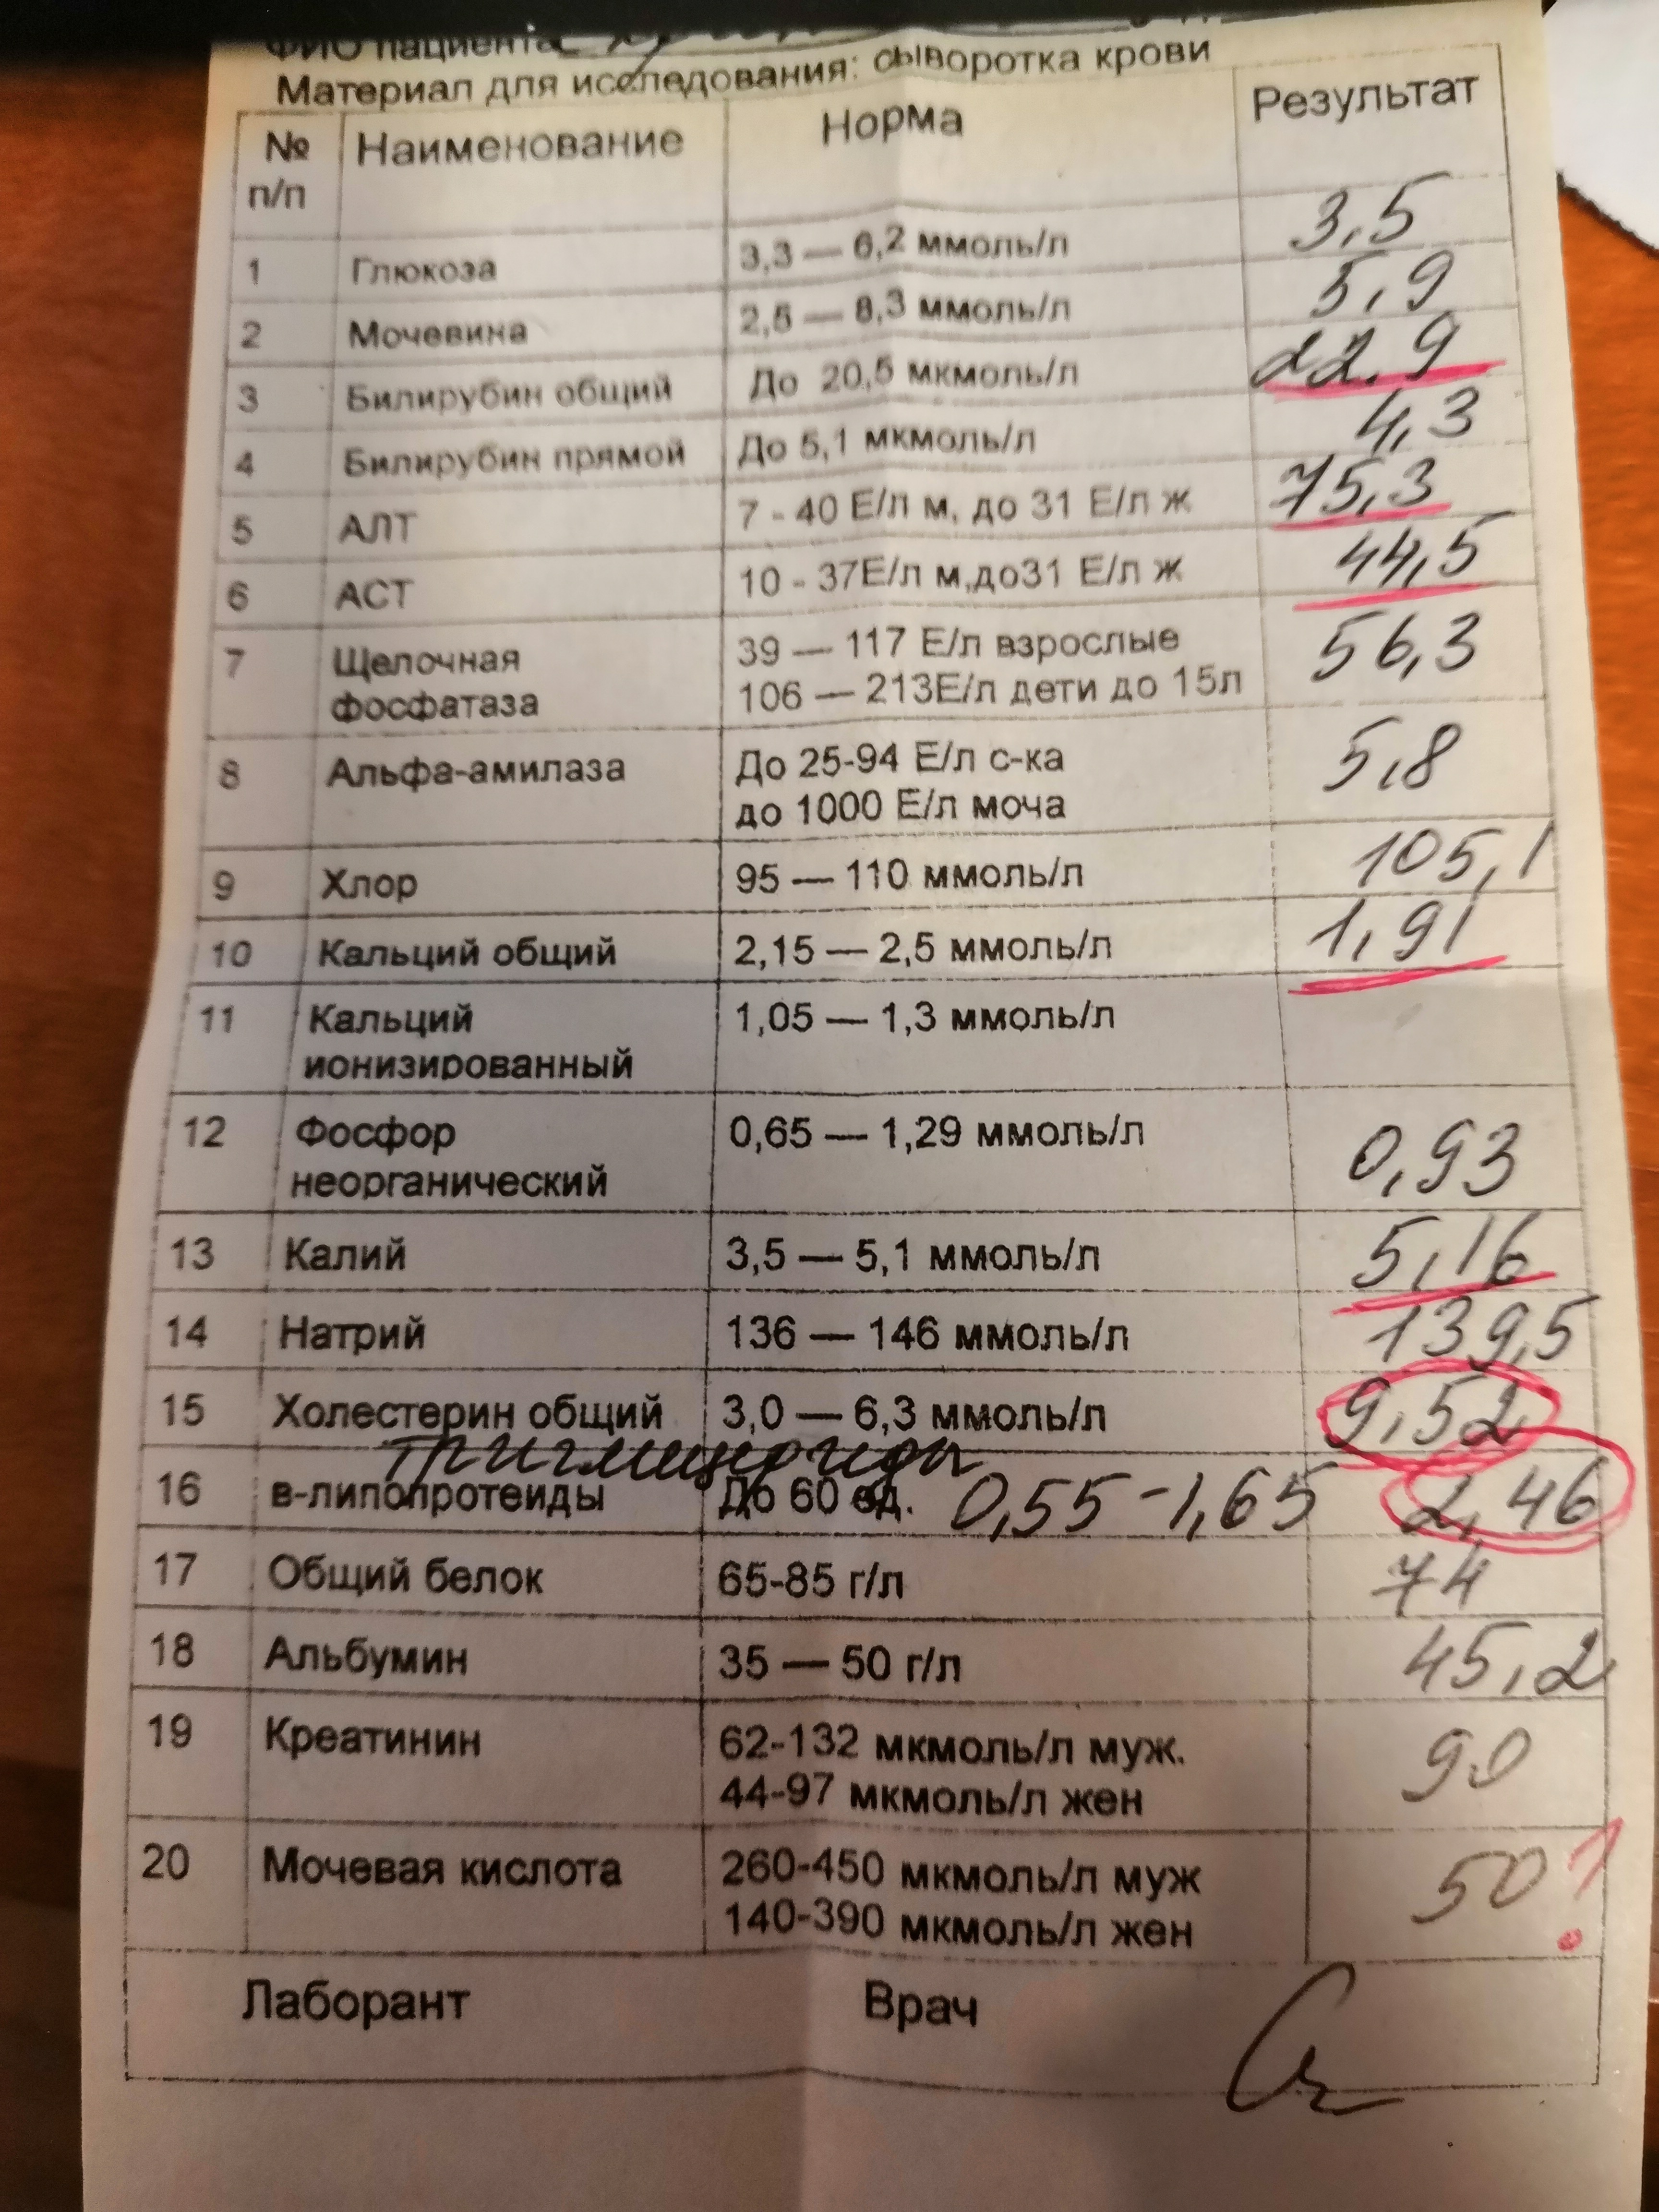 ФИО пациента
Материал для исследования: сыворотка крови
№ п/п Наименование Норма Результат
1 Глюкоза 3,3 — 6,2 ммоль/л 3,5
2 Мочевина 2,5 — 8,3 ммоль/л 5,9
3 Билирубин общий До 20,5 мкмоль/л 22.9
4 Билирубин прямой До 5,1 мкмоль/л 4,3
5 АЛТ 7 - 40 Е/Л м, до 31 Е/л ж 75,3
6 АСТ 10 - 37Е/л м,до31 Е/л ж 44,5
7 Щелочная 39 — 117 Е/л взрослые 56,3
фосфатаза 106 — 213Е/л дети до 15л
8 Альфа-амилаза До 25-94 Е/л с-ка 5,8
до 1000 Е/л моча
9 Хлор 95 — 110 ммоль/л 105,1
10 Кальций общий 2,15 — 2,5 ммоль/л 1,91
11 Кальций 1,05 — 1,3 ммоль/л
ионизированный
12 Фосфор 0,65 — 1,29 ммоль/л 0,93
неорганический
13 Калий 3,5 — 5,1 ммоль/л 5,16
14 Натрий 136 — 146 ммоль/л 139,5
15 Холестерин общий 3,0 — 6,3 ммоль/л 9,52
триглицериды
16 в-липопротеиды До 60 ед. 0,55-1,65 2,46
17 Общий белок 65-85 г/л 74
18 Альбумин 35 — 50 г/л 45,2
19 Креатинин 62-132 мкмоль/л муж. 90
44-97 мкмоль/л жен
20 Мочевая кислота 260-450 мкмоль/л муж 50!
140-390 мкмоль/л жен
Лаборант Врач